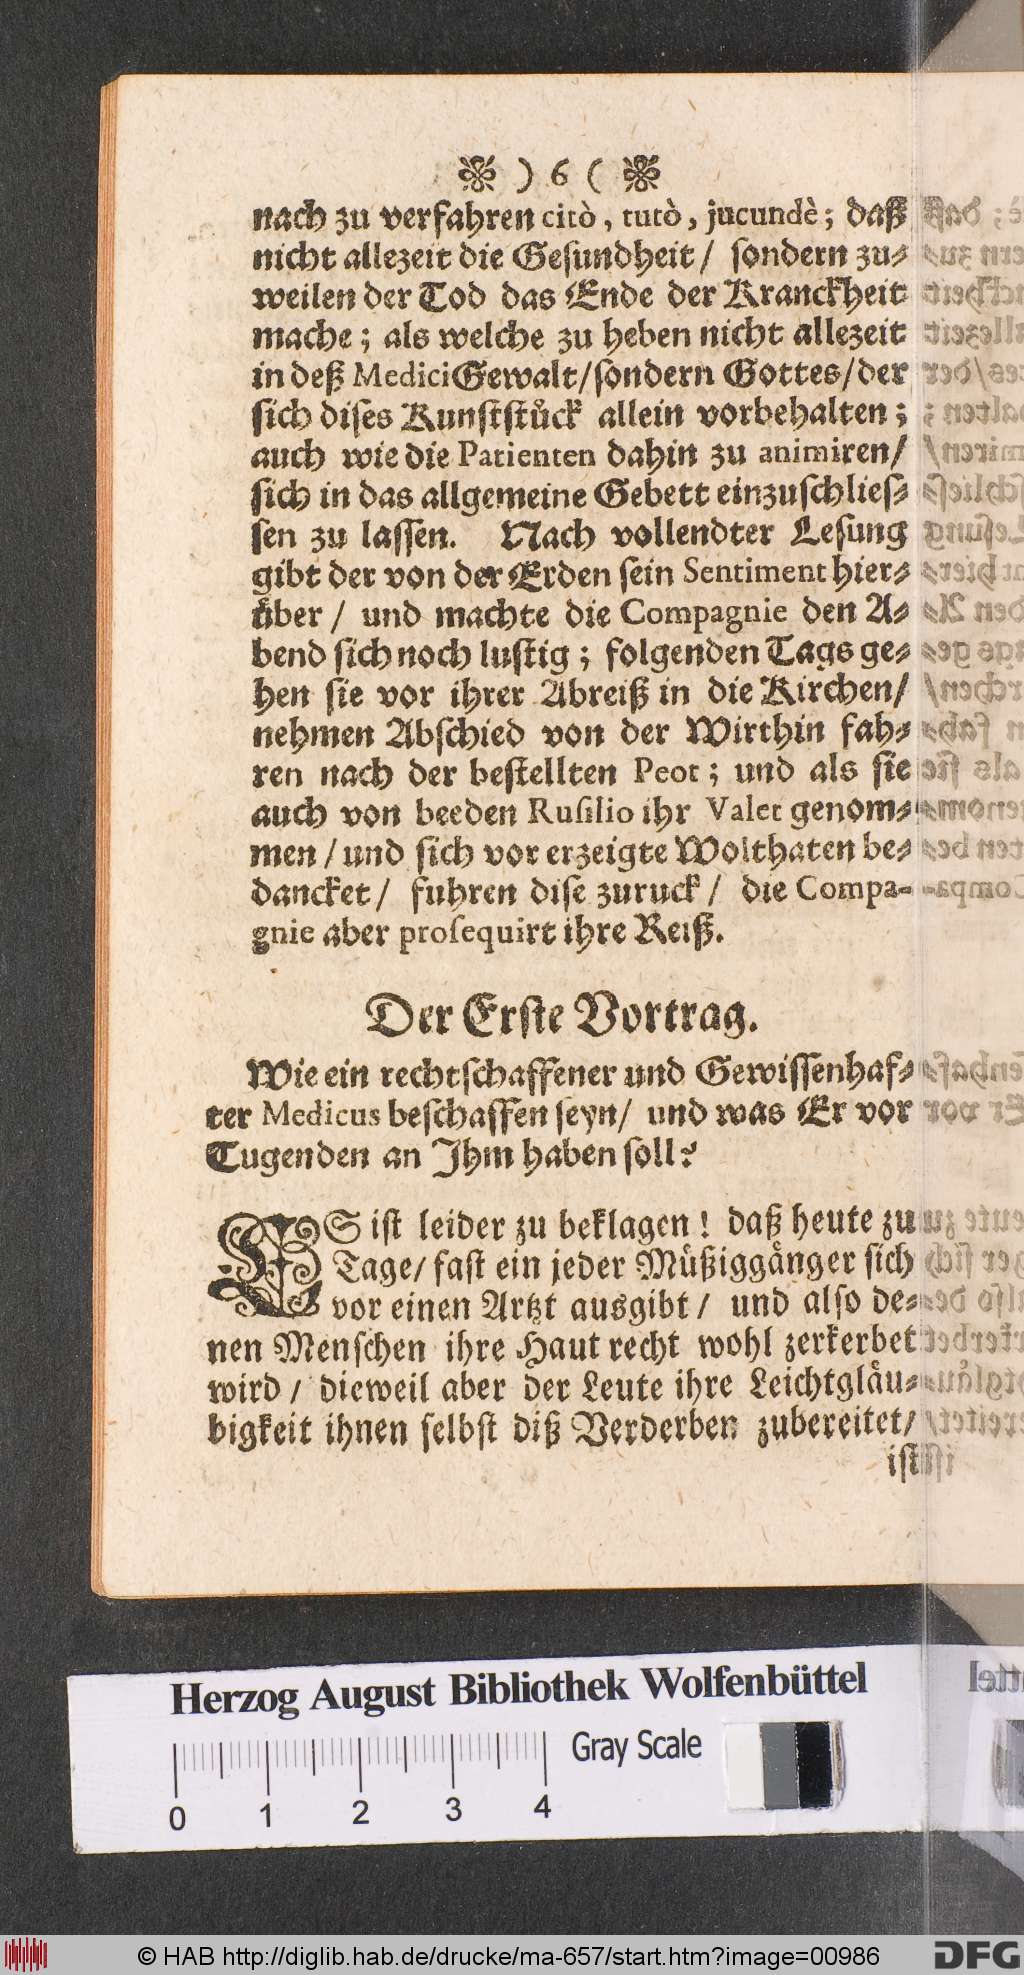 ) 6 (
nach zu verfahren citò, tutò, jucundè; daß
nicht allezeit die Gesundheit/ sondern zu-
weilen der Tod das Ende der Kranckheit
mache; als welche zu heben nicht allezeit
in deß Medici Gewalt/sondern Gottes/der
sich dises Kunststůck allein vorbehalten;
auch wie die Patienten dahin zu animiren/
sich in das allgemeine Gebett einzuschlies-
sen zu lassen. Nach vollendter Lesung
gibt der von der Erden sein Sentiment hier-
ůber/ und machte die Compagnie den A-
bend sich noch lustig; folgenden Tags ge-
hen sie vor ihrer Abreiß in die Kirchen/
nehmen Abschied von der Wirthin fah-
ren nach der bestellten Peot; und als sie
auch von beeden Rusilio ihr Valet genom-
men/und sich vor erzeigte Wolthaten be-
dancket/ fuhren dise zuruck/ die Compa-
gnie aber prosequirt ihre Reiß.
Der Erste Vortrag.
Wie ein rechtschaffener und Gewissenhaf-
ter Medicus beschaffen seyn/ und was Er vor
Tugenden an Ihm haben soll?
ES ist leider zu beklagen! daß heute zu
Tage/ fast ein jeder Müßiggånger sich
vor einen Artzt ausgibt/ und also de-
nen Menschen ihre Haut recht wohl zerkerbet
wird/ dieweil aber der Leute ihre Leichtglåu-
bigkeit ihnen selbst diß Verderben zubereitet/
ist
Herzog August Bibliothek Wolfenbüttel
Gray Scale
0 1 2 3 4
© HAB http://diglib.hab.de/drucke/ma-657/start.htm?image=00986
DFG